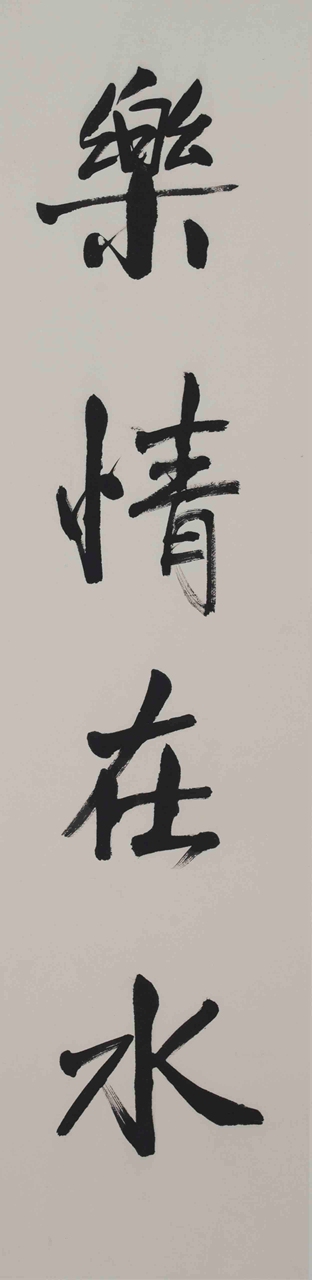 樂情在水